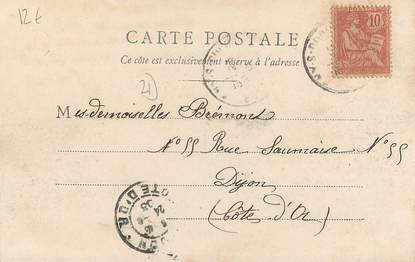 12€
CARTE POSTALE
Ce côté est exclusivement réservé à l'adresse
10
21)
Mesdemoiselles Brémond
N° 55 Rue Saumaise N° 55
Dijon
(Côte d'Or)
CÔTE D'OR